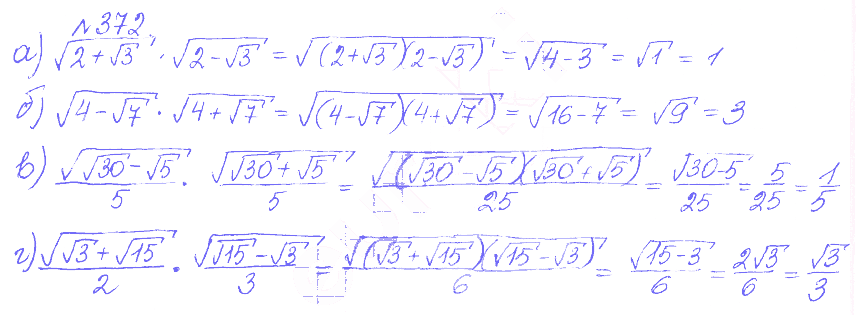 №372.
а) √(2+√3) · √(2-√3) = √((2+√3)(2-√3)) = √(4-3) = √1 = 1
б) √(4-√7) · √(4+√7) = √((4-√7)(4+√7)) = √(16-7) = √9 = 3
в) √(√30-√5)/5 · √(√30+√5)/5 = √((√30-√5)(√30+√5))/25 = √(30-5)/25 = 5/25 = 1/5
г) √(√3+√15)/2 · √(√15-√3)/3 = √((√3+√15)(√15-√3))/6 = √(15-3)/6 = 2√3/6 = √3/3